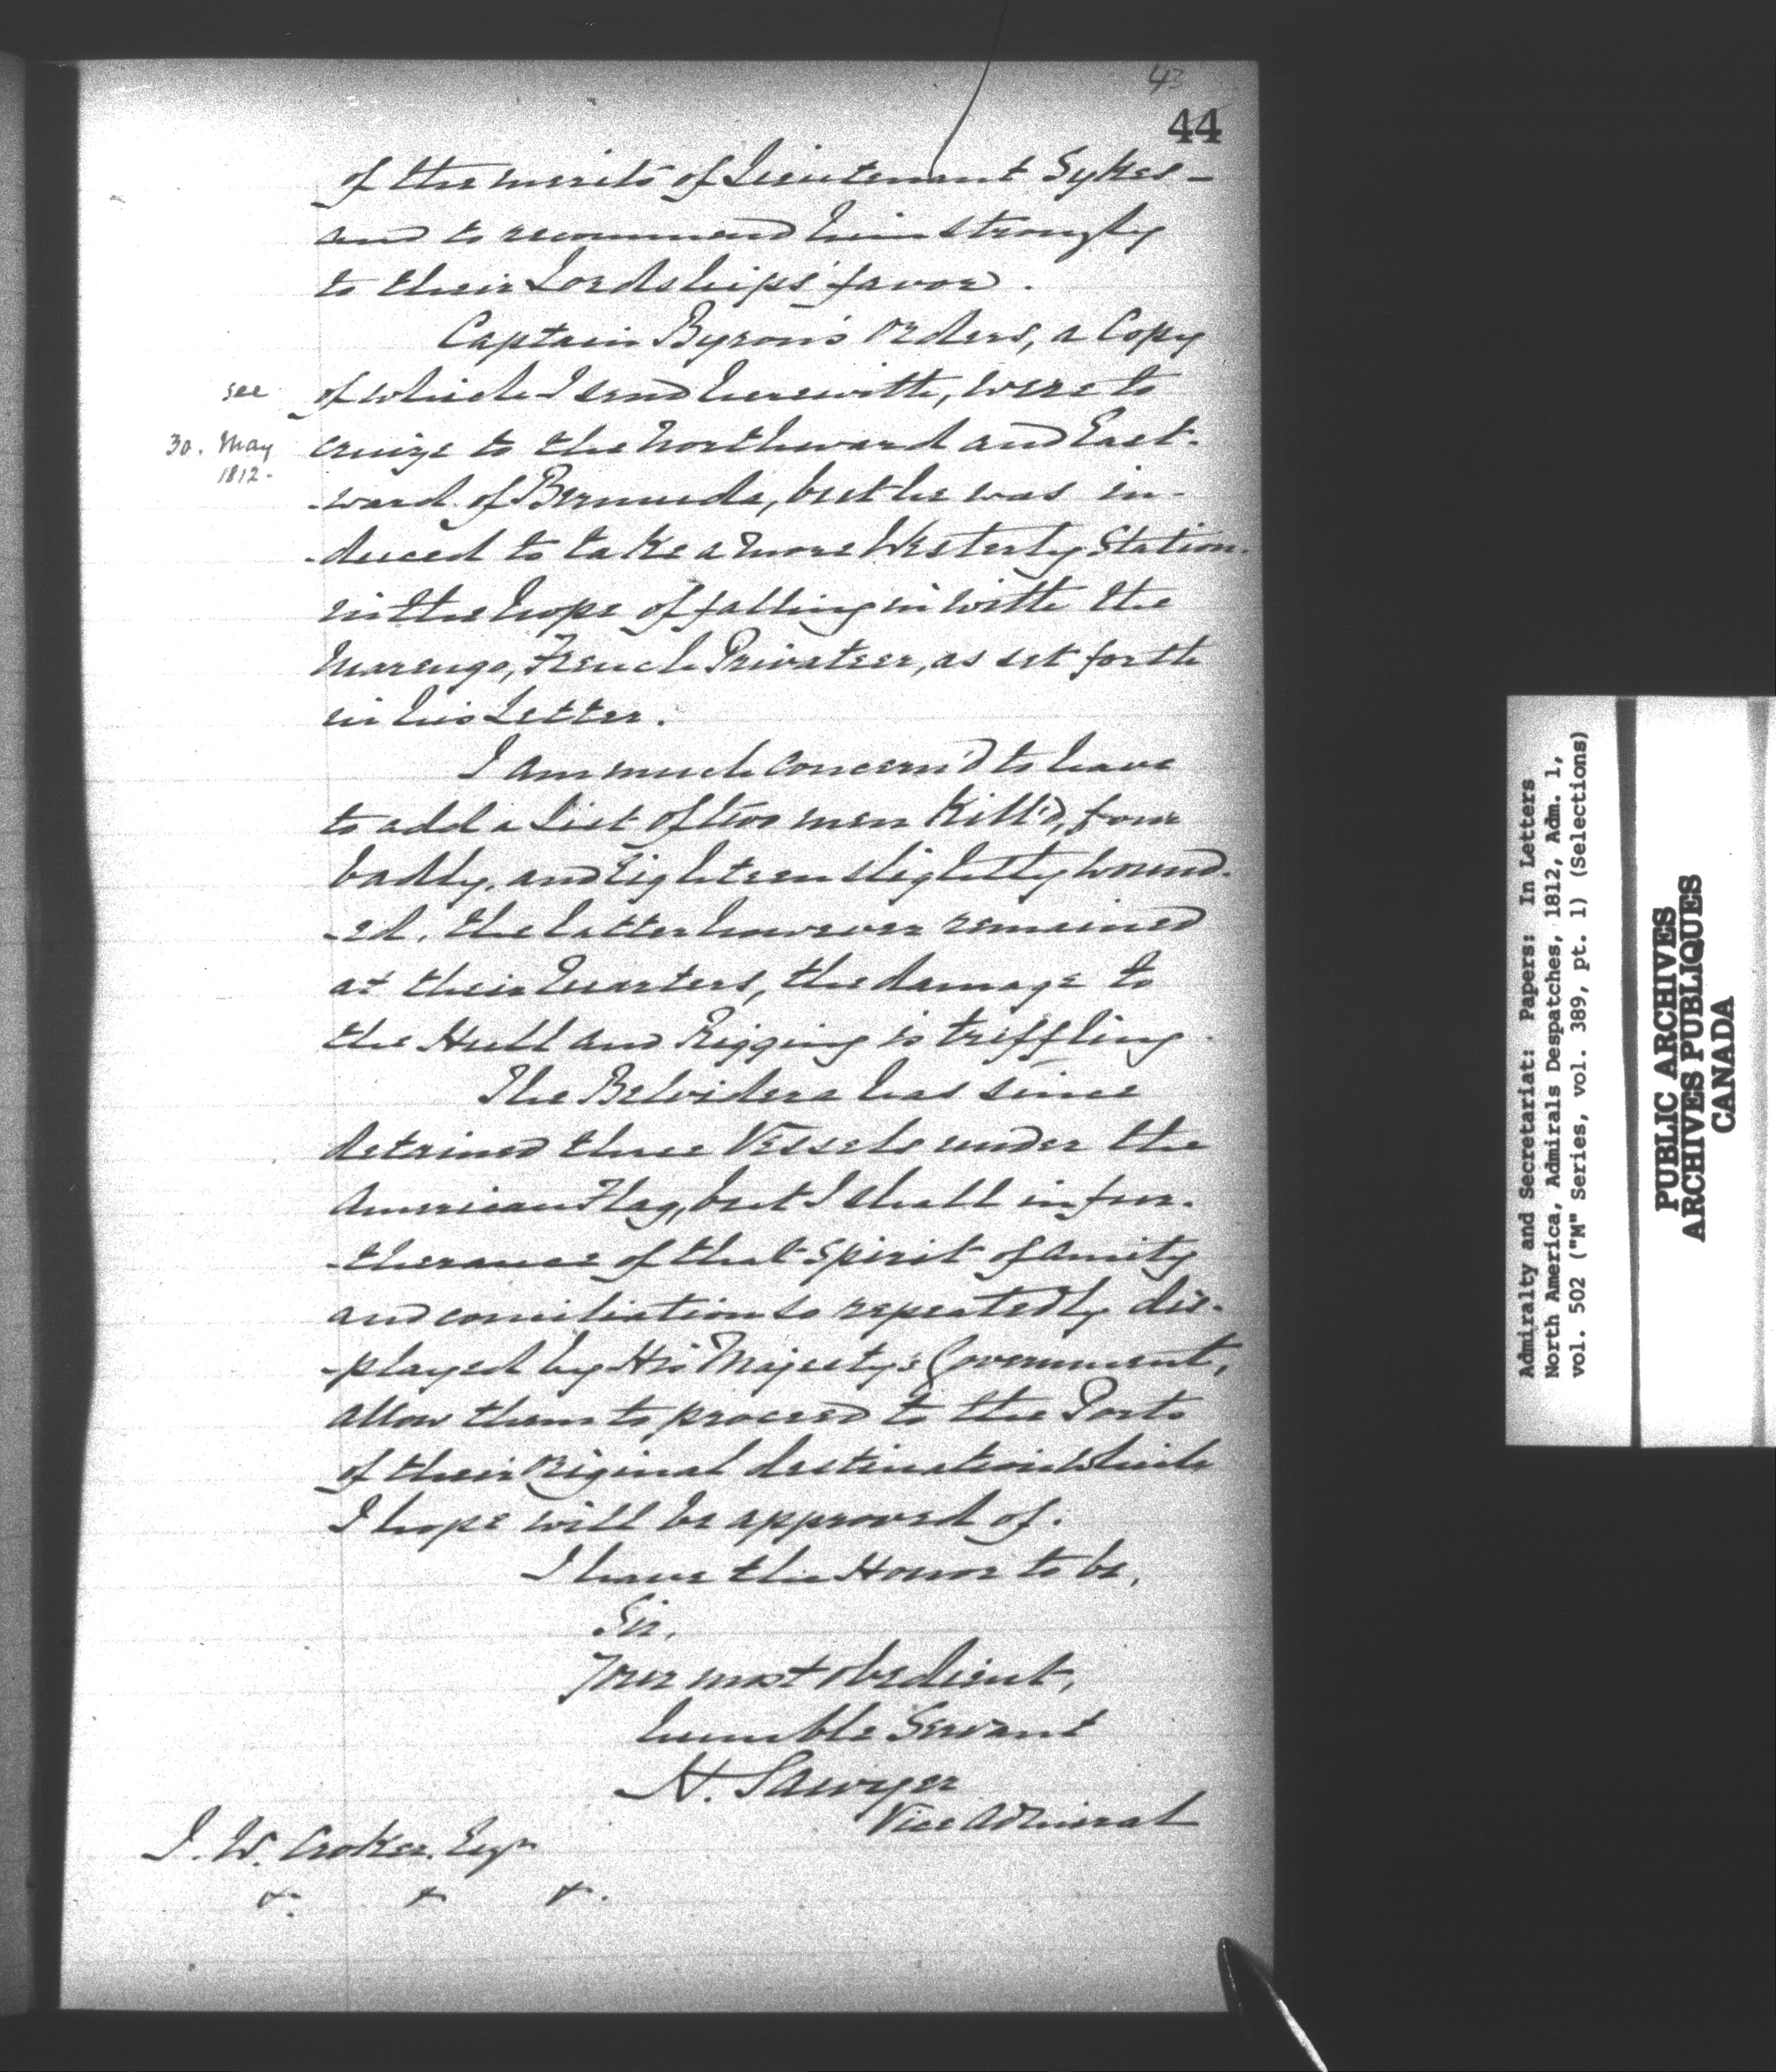 43
44
of the merits of Lieutenant Sykes -
and to recommend him strongly
to their Lordships' favor.
Captain Byron's Orders, a Copy
see
of which I send herewith, were to
30. May
1812-
cruize to the Northward and East-
-ward of Bermuda, but he was in-
-duced to take a more Westerly Station.
in the hope of falling in with the
Marengo, French Privateer, as set forth
in his Letter.
I am much concern'd to have
to add a List of two men Kill'd, four
badly, and Eighteen slightly wound-
-ed, the latter however remained
at their Quarters, the damage to
the Hull and Rigging is triffling.
The Belvidera has since
detained three Vessels under the
American Flag, but I shall in fur-
-therance of that Spirit of Amity
and conciliation so repeatedly dis-
-played by His Majesty's Government,
allow them to proceed to the Ports
of their Original destination which
I hope will be approved of.
I have the Honor to be,
Sir,
Your most obedient,
humble Servant
H. Sawyer
Vice Admiral
J. W. Croker. Esqr
&. & &.
Admiralty and Secretariat: Papers: In Letters
North America, Admirals Despatches, 1812, Adm. 1,
vol. 502 ("M" Series, vol. 389, pt. 1) (Selections)
PUBLIC ARCHIVES
ARCHIVES PUBLIQUES
CANADA